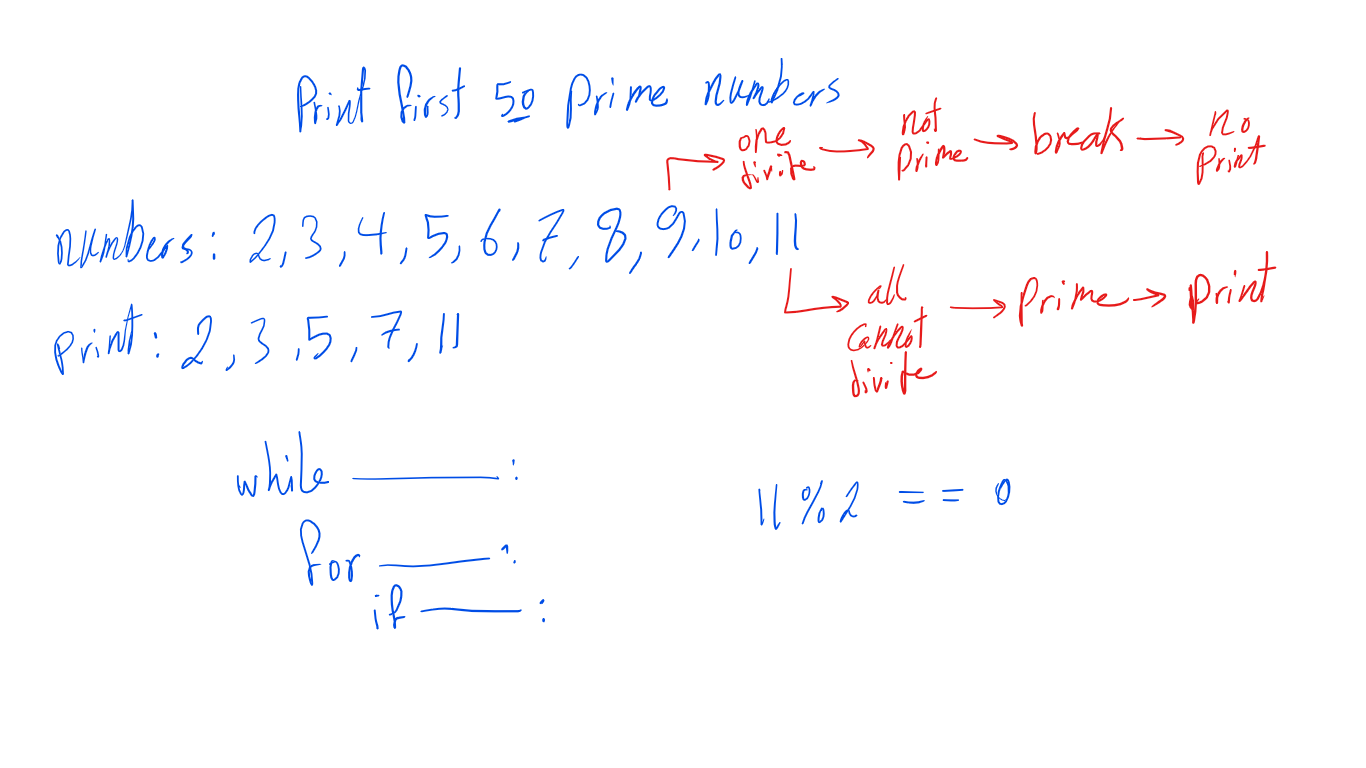 Print first 50 prime numbers
one divite → not prime → break → no print
numbers: 2, 3, 4, 5, 6, 7, 8, 9, 10, 11
all cannot divite → prime → print
print: 2, 3, 5, 7, 11
while ______ :
for ______ :
if ______ :
11 % 2 == 0